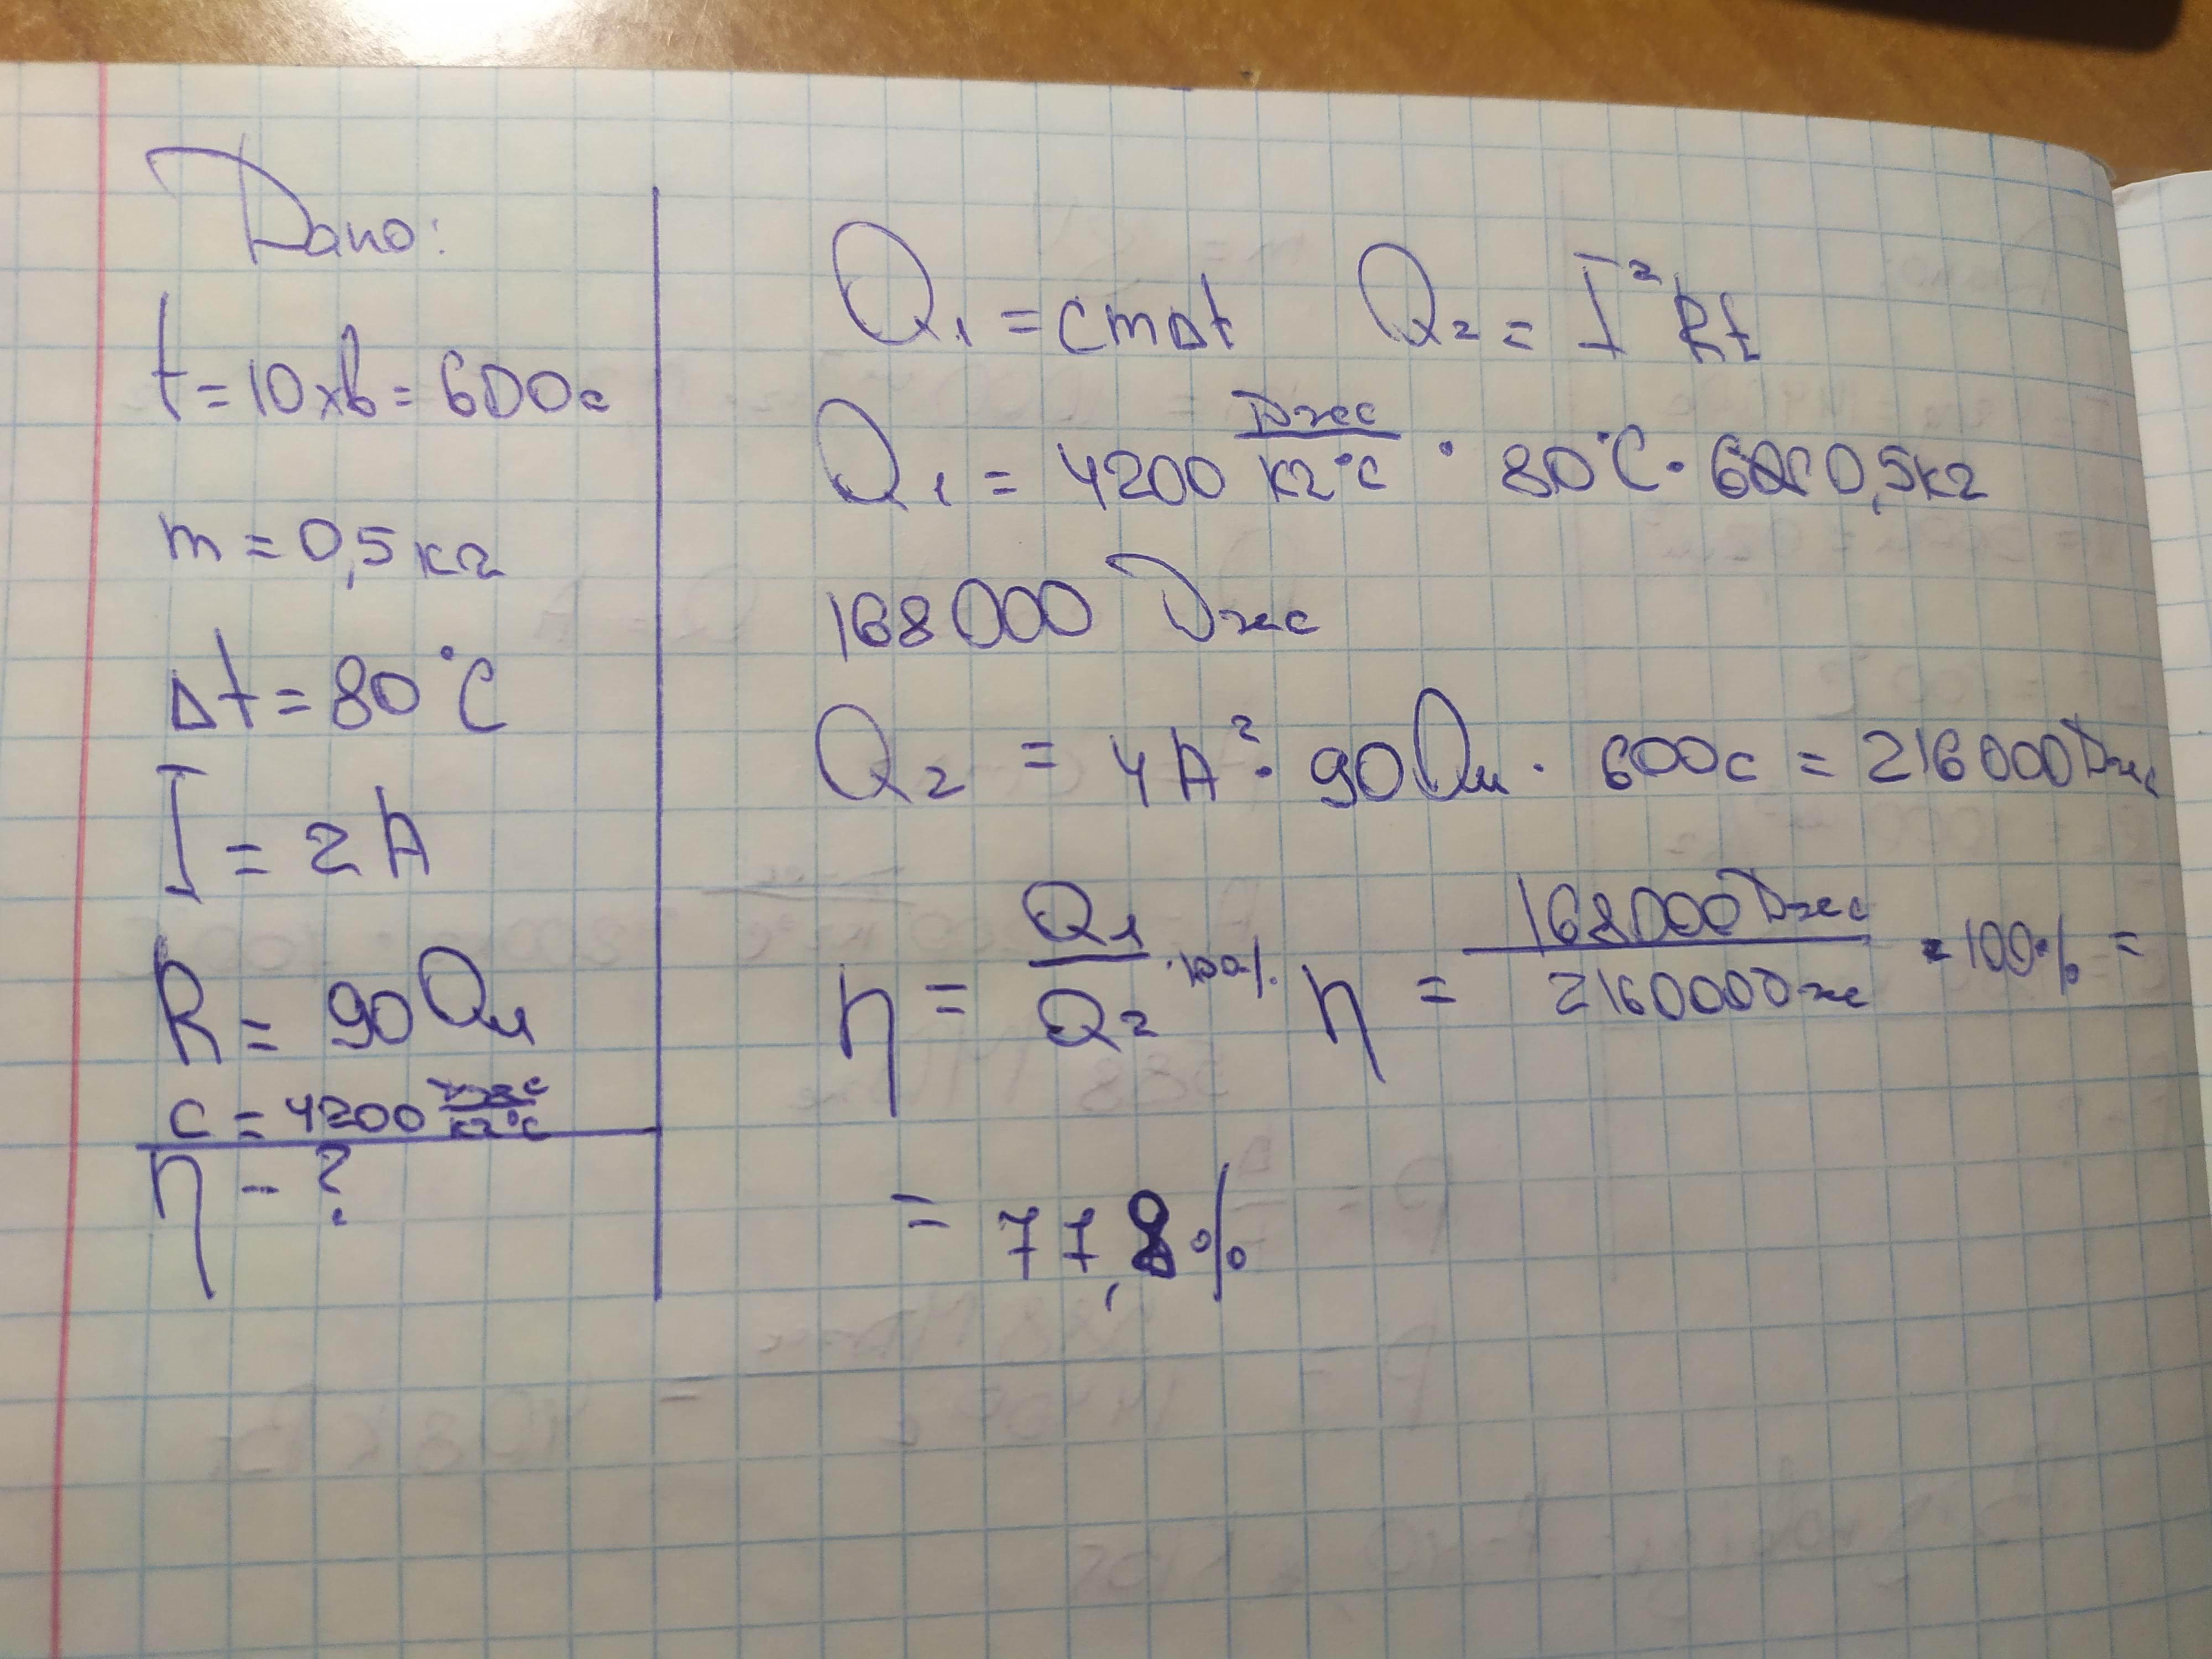 Дано:
t = 10 хв = 600 с
m = 0,5 кг
Δt = 80 °C
I = 2 А
R = 90 Ом
c = 4200 Дж/кг°C
η - ?
Q₁ = cmΔt Q₂ = I²Rt
Q₁ = 4200 Дж/кг°C · 80°C · 0,5 кг
168000 Дж
Q₂ = 4 А² · 90 Ом · 600 с = 216000 Дж
η = Q₁/Q₂ · 100% η = 168000 Дж/216000 Дж · 100% =
= 77,8%